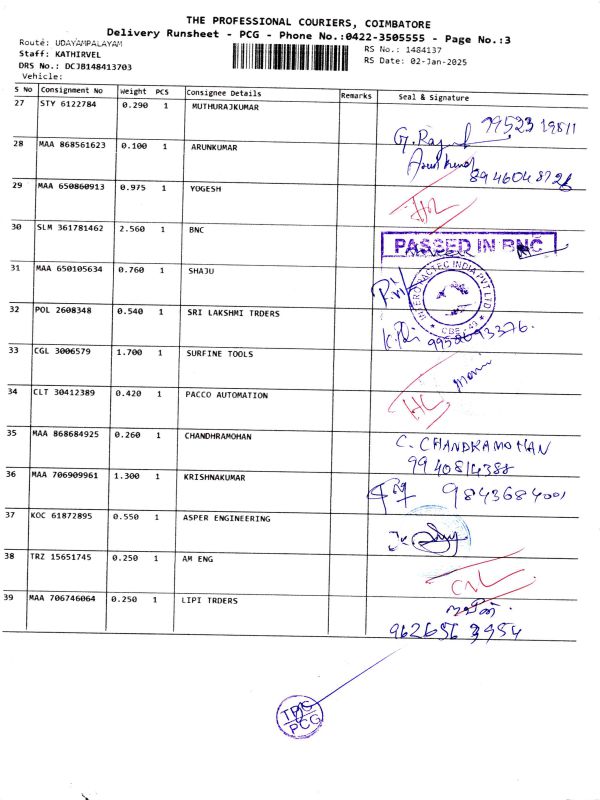 THE PROFESSIONAL COURIERS, COIMBATORE
Delivery Runsheet - PCG - Phone No.:0422-3505555 - Page No.:3
Route: UDAYAMPALAYAM
Staff: KATHIRVEL
DRS No.: DCJB148413703
Vehicle:
RS No.: 1484137
RS Date: 02-Jan-2025
S No Consignment No Weight PCS Consignee Details Remarks Seal & Signature
27 STY 6122784 0.290 1 MUTHURAJKUMAR
28 MAA 868561623 0.100 1 ARUNKUMAR
Arunkumar
29 MAA 650860913 0.975 1 YOGESH
30 SLM 361781462 2.560 1 BNC
PASSED IN BNC
31 MAA 650105634 0.760 1 SHAJU
32 POL 2608348 0.540 1 SRI LAKSHMI TRDERS
33 CGL 3006579 1.700 1 SURFINE TOOLS
34 CLT 30412389 0.420 1 PACCO AUTOMATION
35 MAA 868684925 0.260 1 CHANDHRAMOHAN
C. CHANDRAMOHAN
36 MAA 706909961 1.300 1 KRISHNAKUMAR
9843684001
37 KOC 61872895 0.550 1 ASPER ENGINEERING
38 TRZ 15651745 0.250 1 AM ENG
39 MAA 706746064 0.250 1 LIPI TRDERS
PCG